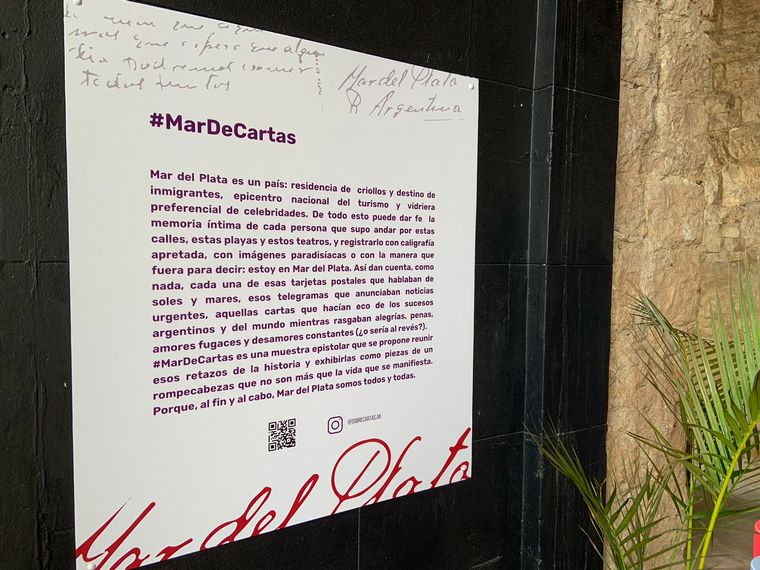 mal que espero que algun
dia podremos comer
todos juntos
Mar del Plata
R Argentina
#MarDeCartas
Mar del Plata es un país: residencia de criollos y destino de
inmigrantes, epicentro nacional del turismo y vidriera
preferencial de celebridades. De todo esto puede dar fe la
memoria íntima de cada persona que supo andar por estas
calles, estas playas y estos teatros, y registrarlo con caligrafía
apretada, con imágenes paradisíacas o con la manera que
fuera para decir: estoy en Mar del Plata. Así dan cuenta, como
nada, cada una de esas tarjetas postales que hablaban de
soles y mares, esos telegramas que anunciaban noticias
urgentes, aquellas cartas que hacían eco de los sucesos
argentinos y del mundo mientras rasgaban alegrías, penas,
amores fugaces y desamores constantes (¿o sería al revés?).
#MarDeCartas es una muestra epistolar que se propone reunir
esos retazos de la historia y exhibirlas como piezas de un
rompecabezas que no son más que la vida que se manifiesta.
Porque, al fin y al cabo, Mar del Plata somos todos y todas.
@SOBRECARTAS.AR
Mar del Plata